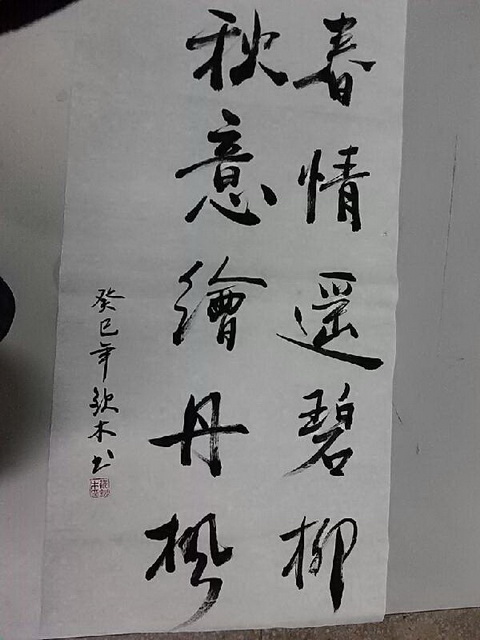 春情遥碧柳
秋意繪丹楓
癸巳年欽木书